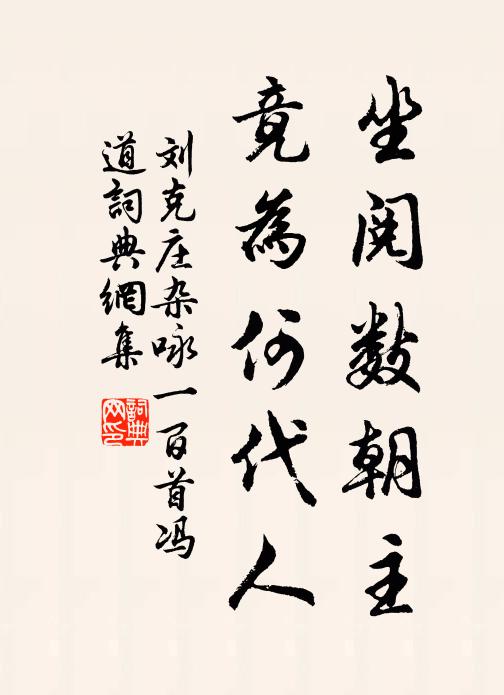 坐阅数朝主
竟為何代人
刘克庄杂咏一百首冯
道詞典網集
詞典
网印